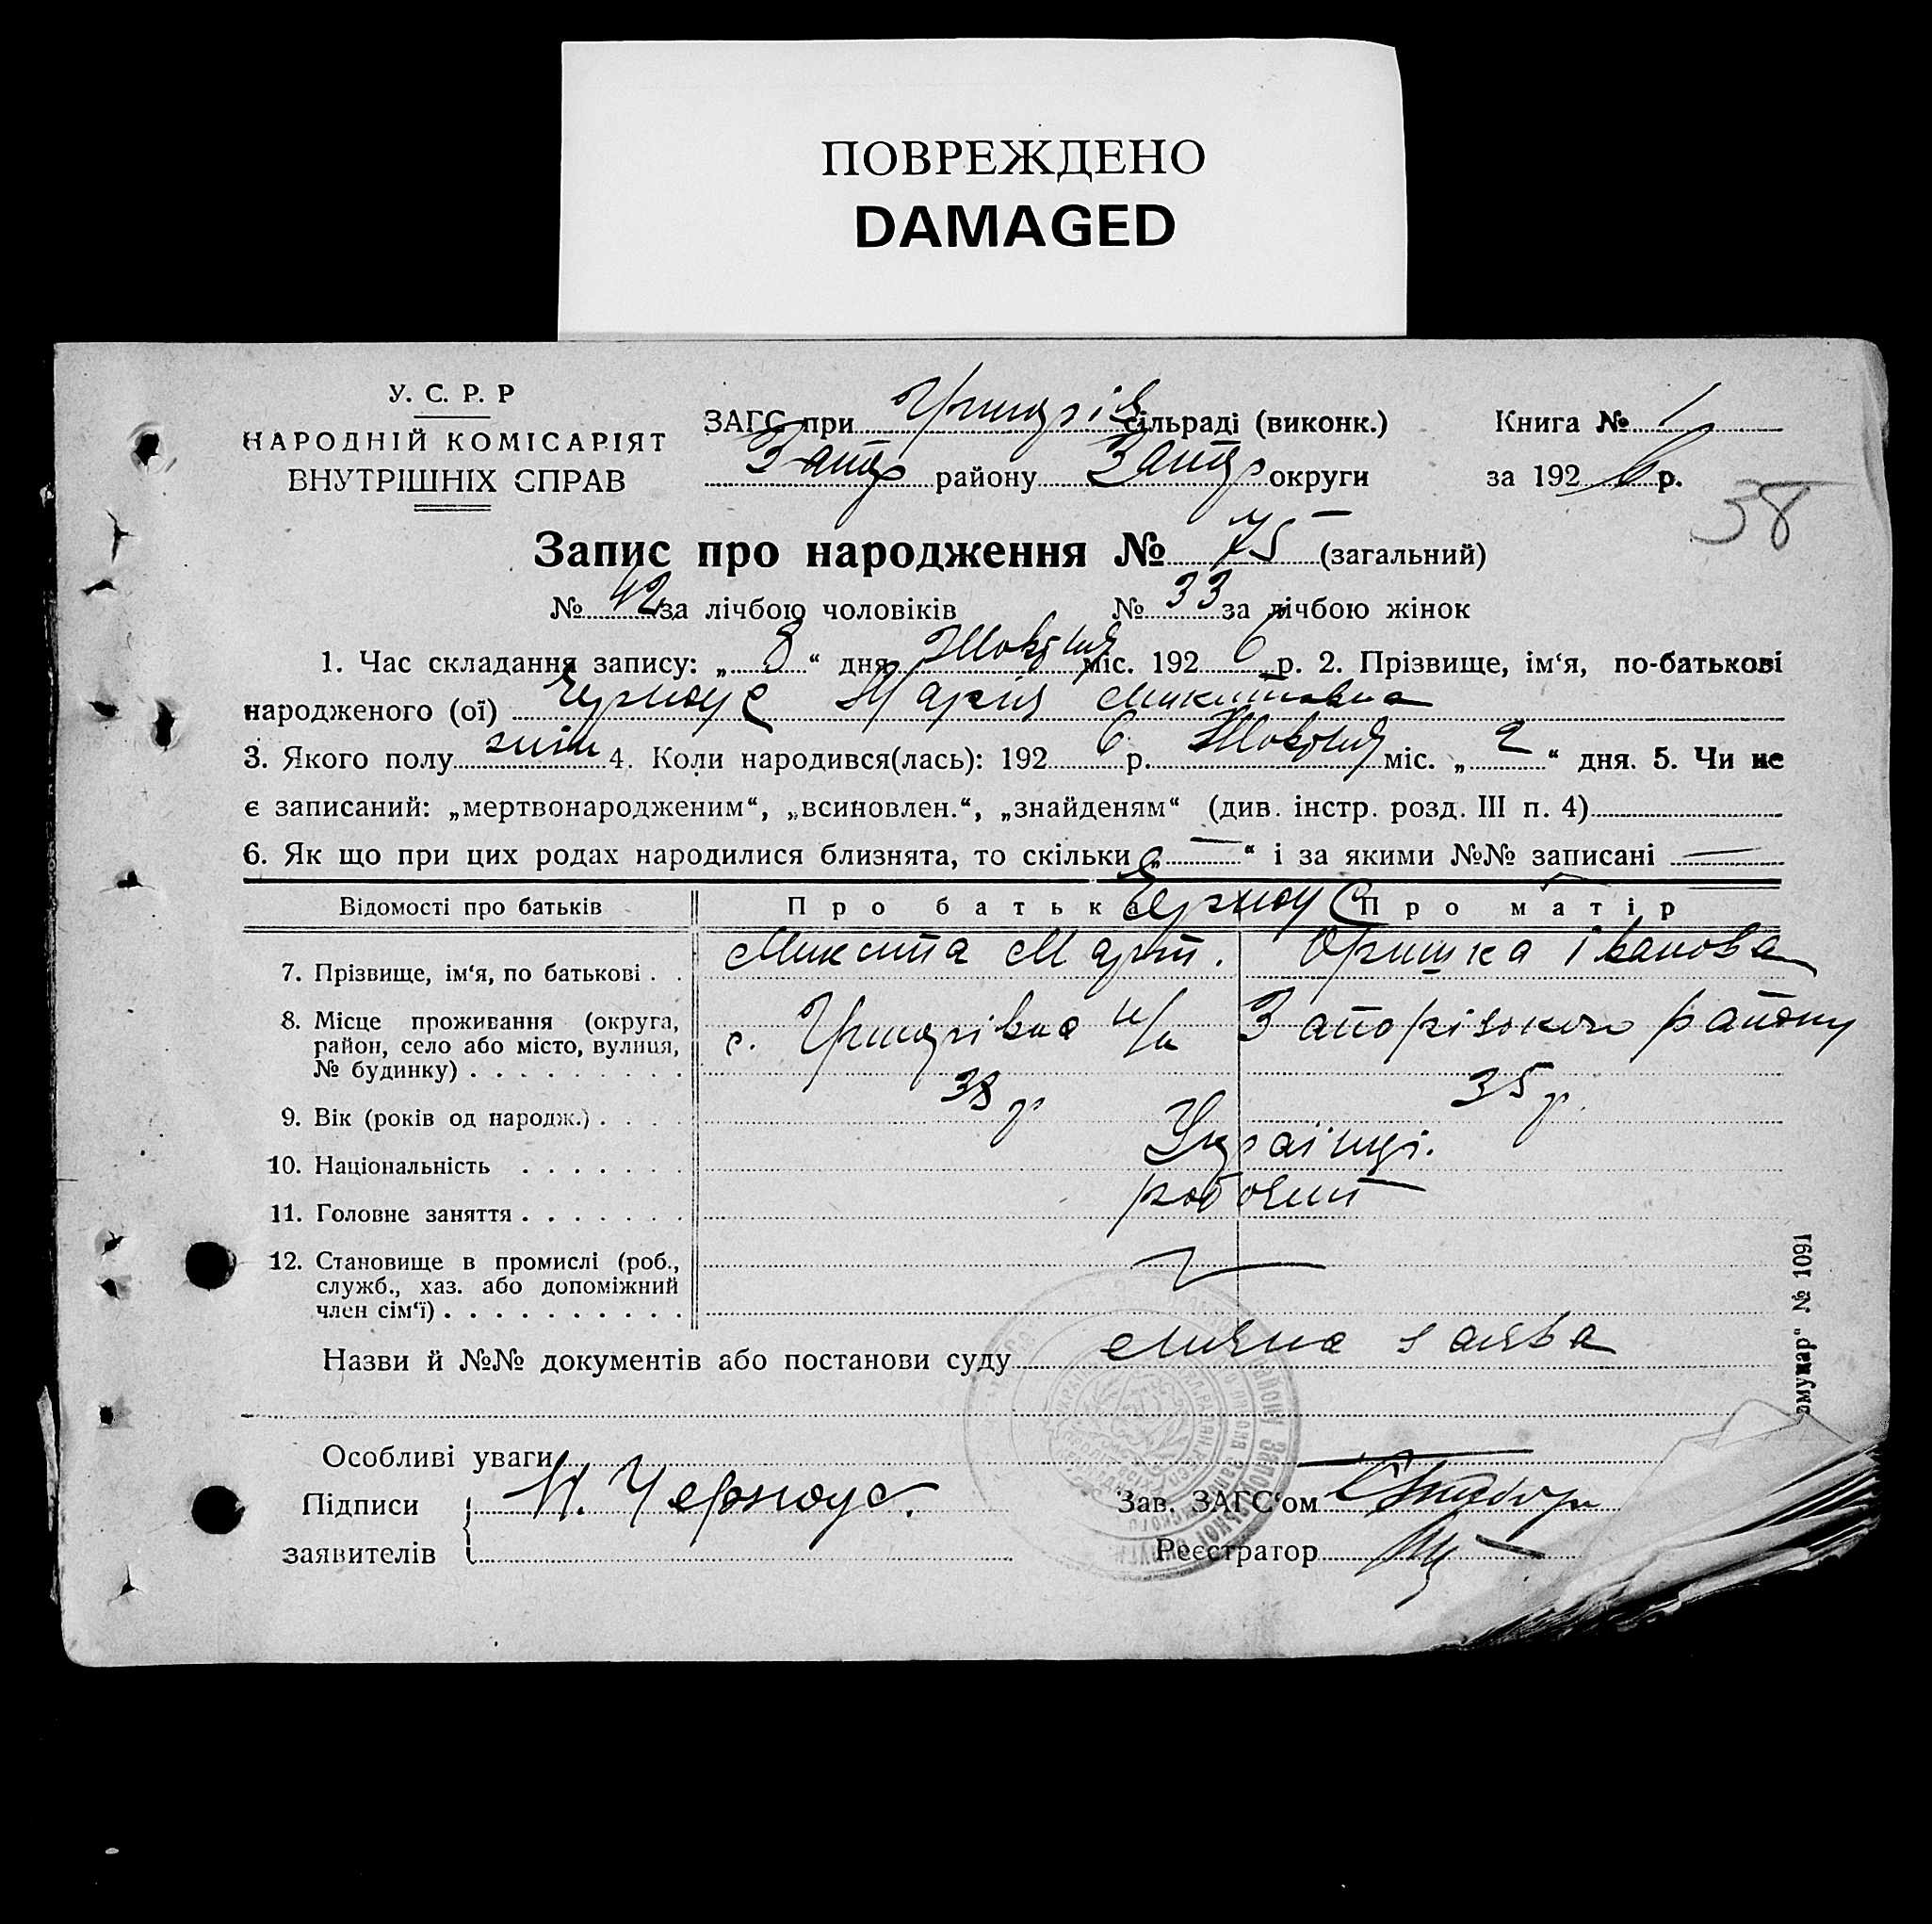 ПОВРЕЖДЕНО
DAMAGED
У. С. Р. Р
НАРОДНІЙ КОМІСАРІЯТ
ВНУТРІШНІХ СПРАВ
ЗАГС при сільраді (виконк.)
Запор району Запор округи
Книга № 1
за 1926 р.
38
Запис про народження № 75 (загальний)
№ 42 за лічбою чоловіків № 33 за лічбою жінок
1. Час складання запису: „ 8 “ дня Жовтня міс. 192 6 р. 2. Прізвище, ім‘я, по-батькові
народженого (ої) Черноус Марія Микитовна
3. Якого полу жін 4. Коли народився(лась): 192 6 р. Жовтня міс. „ 2 “ дня. 5. Чи не
є записаний: „мертвонародженим“, „всиновлен.“, „знайденям“ (див. інстр. розд. III п. 4)
6. Як що при цих родах народилися близнята, то скільки „ — “ і за якими №№ записані —
Відомості про батьків Про батька Черноус Про матір
7. Прізвище, ім‘я, по батькові . . Микита Март. Оришка Іванова
8. Місце проживання (округа,
район, село або місто, вулиця,
№ будинку) . . . . . . . . . с. Запорізького району
9. Вік (років од народж.) . . . . 38 р 35 р.
10. Національність . . . . . . . Українці.
11. Головне заняття . . . . . . .
12. Становище в промислі (роб.,
служб., хаз. або допоміжний
член сім‘ї) . . . . . . . . . .
Назви й №№ документів або постанови суду заява
Особливі уваги
Підписи Н. Черноус.
заявителів
Зав. ЗАГС‘ом
Реєстратор
№ 1091